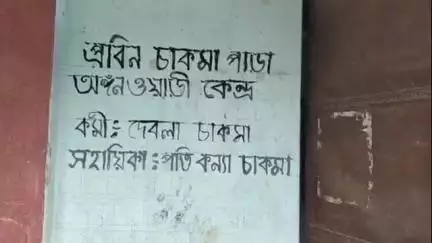 প্রবিন চাকমা পাড়া
অঙ্গনওয়াড়ী কেন্দ্র
কর্মী: দেবলা চাকমা
সহায়িকা: পতি কন্যা চাকমা